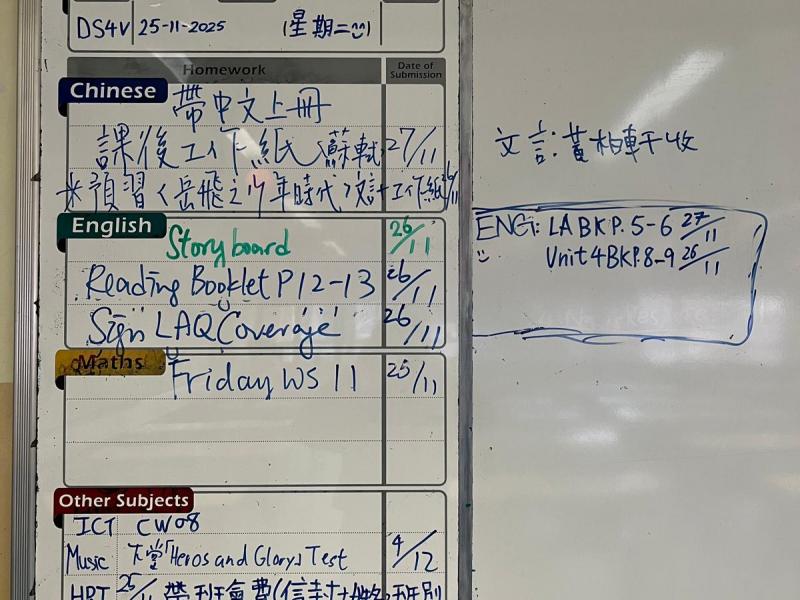 DS4V 25-11-2025 (星期二)
Homework Date of Submission
Chinese 帶中文上冊
課後工作紙〈蘇軾〉 27/11
*預習〈岳飛之少年時代〉文計+工作紙 26/11
English Story board 26/11
Reading Booklet P12-13 26/11
Sign LAQ Coverage 26/11
Maths Friday WS 11 25/11
Other Subjects
ICT CW08
Music 下堂「Heros and Glory」Test 4/12
HRT 25/11 帶班會費(信封+姓名+班別
文言:黃柏軒收
ENG: LA BK P.5-6 27/11
Unit 4 BK P.8-9 26/11